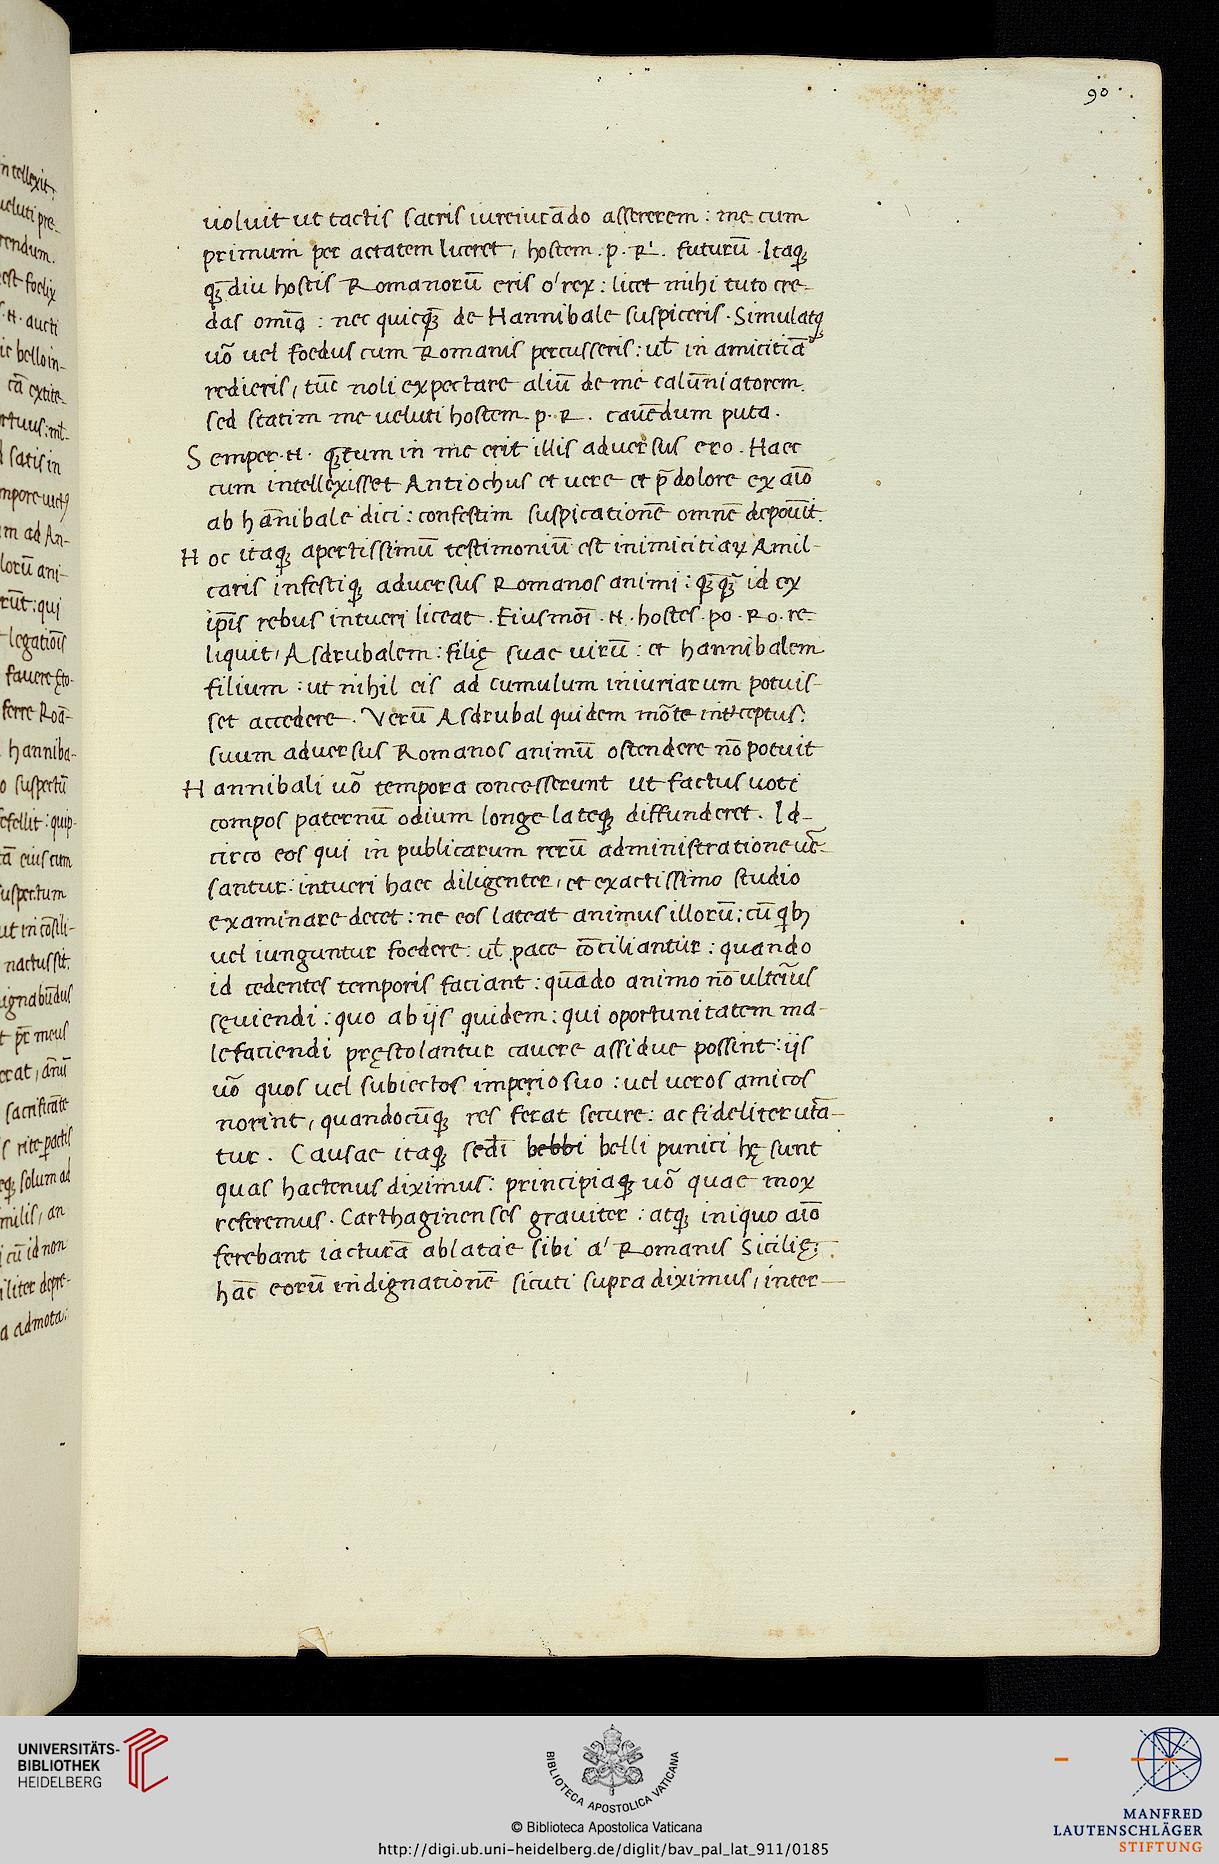 90
uoluit ut tactis sacris iureiurādo assererem : me cum
primum per aetatem liceret, hostem . p . R . futurū . Itaqꝫ
qꝫ̄ diu hostis Romanorū eris o' rex : licet mihi tuto cre-
das omīa : nec quicqꝫ̄ de Hannibale suspiceris . Simulatqꝫ
uō uel foedus cum Romanis percusseris : ul̄ in amicitiā
redieris, tūc noli expectare aliū de me calūniatorem .
sed statim me ueluti hostem . p . R . cauēdum puta .
Semper . N . qꝫ̄tum in me erit illis aduersus ero . Haec
cum intellexisset Antiochus et uere et p̄ dolore ex aīo
ab hānibale dici : confestim suspicationē omnē depoūit .
Hoc itaqꝫ apertissimū testimoniū est inimicitiaꝝ Amil-
caris infestiqꝫ aduersus Romanos animi : qꝫ̄qꝫ̄ id ex
ip̄is rebus intueri liceat . Eiusmōi . N . hostes . po . Ro . re-
liquit, Asdrubalem : filię suae uirū : et hannibalem
filium : ut nihil eis ad cumulum iniuriarum potuis-
set accedere . Verū Asdrubal quidem mōte interceptus :
suum aduersus Romanos animū ostendere nō potuit
Hannibali uō tempora concesserunt ut factus uoti
compos paternū odium longe lateqꝫ diffunderet . Id-
circo eos qui in publicarum rerū administratione uē-
santur : intueri haec diligenter, et exactissimo studio
examinare decet : ne eos lateat animus illorū : cū qībꝫ
uel iunguntur foedere : ul̄ pace cōciliantur : quando
id cedentes temporis faciant : quādo animo nō ulteīus
sęuiendi : quo ab ijs quidem : qui oportunitatem ma-
lefaciendi pręstolantur cauere assidue possint : ijs
uō quos uel subiectos imperio suo : uel ueros amicos
norint, quandocūqꝫ res ferat secure : ac fideliter utā-
tur . Causae itaqꝫ sed̄i bebbi belli punici hę sunt
quas hactenus diximus : principiaqꝫ uō quae mox
referemus . Carthaginenses grauiter : atqꝫ iniquo aīo
ferebant iacturā ablatae sibi a' Romanis Sicilię :
hāc eorū indignationē sicuti supra diximus, inter-
UNIVERSITÄTS-
BIBLIOTHEK
HEIDELBERG
BIBLIOTECA APOSTOLICA VATICANA
© Biblioteca Apostolica Vaticana
http://digi.ub.uni-heidelberg.de/diglit/bav_pal_lat_911/0185
MANFRED
LAUTENSCHLÄGER
STIFTUNG